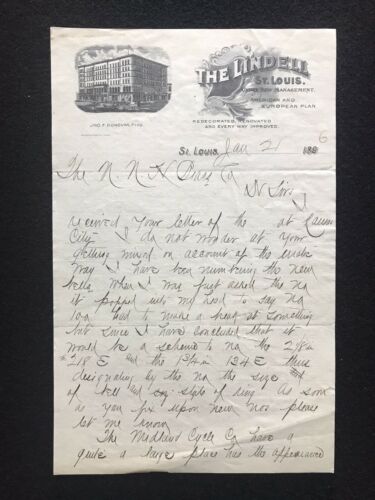 THE LINDELL
ST. LOUIS.
UNDER NEW MANAGEMENT.
AMERICAN AND
EUROPEAN PLAN
JNO. F. DONOVAN, PROP.
REDECORATED, RENOVATED
AND EVERY WAY IMPROVED.
St. Louis, Jan 21 1886
The N. N. H Co
Dr Sirs
I
received your letter of the at
City I do not wonder at your
getting mixed on account of the
way I have been numbering the new
bells. When I was first asked the no
it popped into my head to say no
100 had to make a at something
but since I have concluded that it
would be a scheme to no the 2 1/8 in
#218 E and the 134 E thus
designating by the no the size
of bell and style of ring. As soon
as you fix upon new nos please
let me know
The Midland Cycle Co have a
quite a large place has the appearance